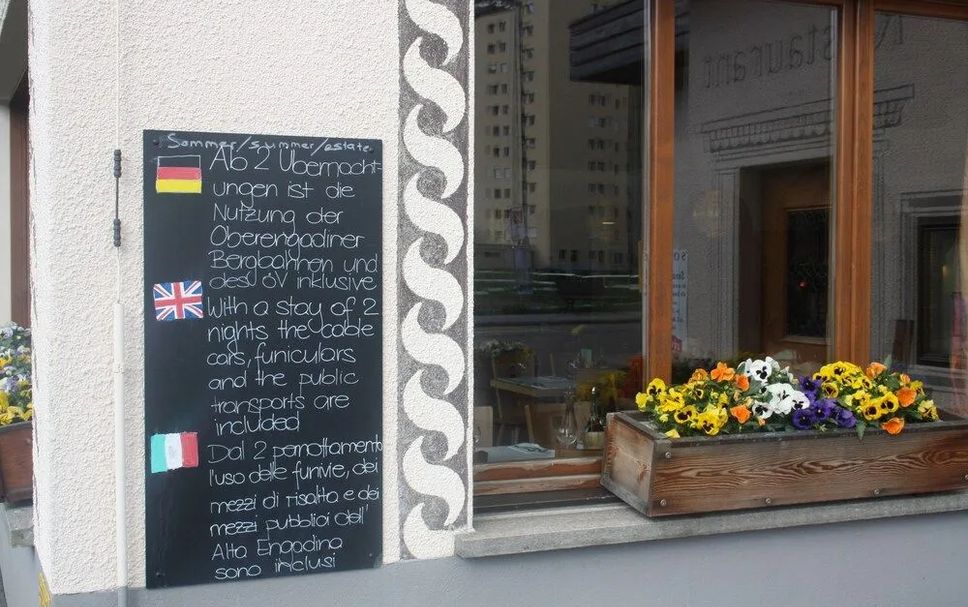 Sommer/summer/estate
Ab 2 Übernacht-
ungen ist die
Nutzung der
Oberengadiner
Bergbahnen und
des ÖV inklusive
With a stay of 2
nights the cable
cars, funiculars
and the public
transports are
included
Dal 2 pernottamento
l'uso delle funivie, dei
mezzi di risalta e dei
mezzi pubblici dell'
Alta Engadina
sono inclusi
Restaurant